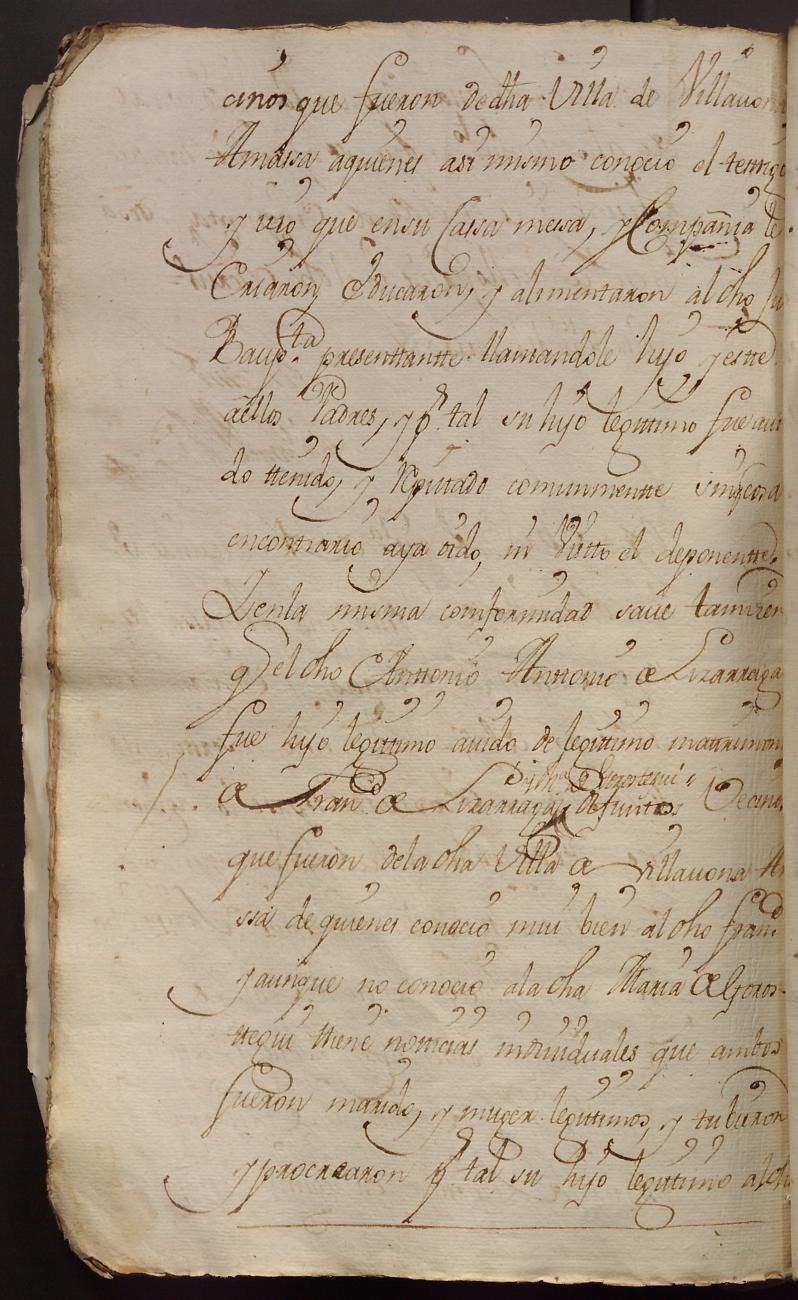 cinos que fueron de dha Villa de Villauon
Amassa aquienes asi mismo conocio el testigo
y uio que en su Cassa messa, y Compañia le
Criaron, educaron, y alimentaron al dho Ju
Baup.ta presenttantte llamandole hijo y estte
a ellos Padres, y p.r tal su hijo legittimo fue aui
do ttenido, y Reputado comunmentte sin q cosa
en contrario aya oido, ni Vistto el deponentte
Y en la misma comformidad saue tamuien
q el dho Anttonio Anttonio de Lizarraga
fue hijo legittimo auido de legittimo matrimon
y dha de Gorosteguí
de Fran.co de Lizarraga, defuntos Vecinos
que fueron de la dha Villa de Villauona A
ssa de quienes conocio mui bien al dho fran.co
y aunque no conocio a la dha Maria de Goros-
ttegui ttiene notticias indiuiduales que ambos
fueron marido, y muger legittimos, y tubieron
y procrearon p.r tal su hijo legittimo al dh